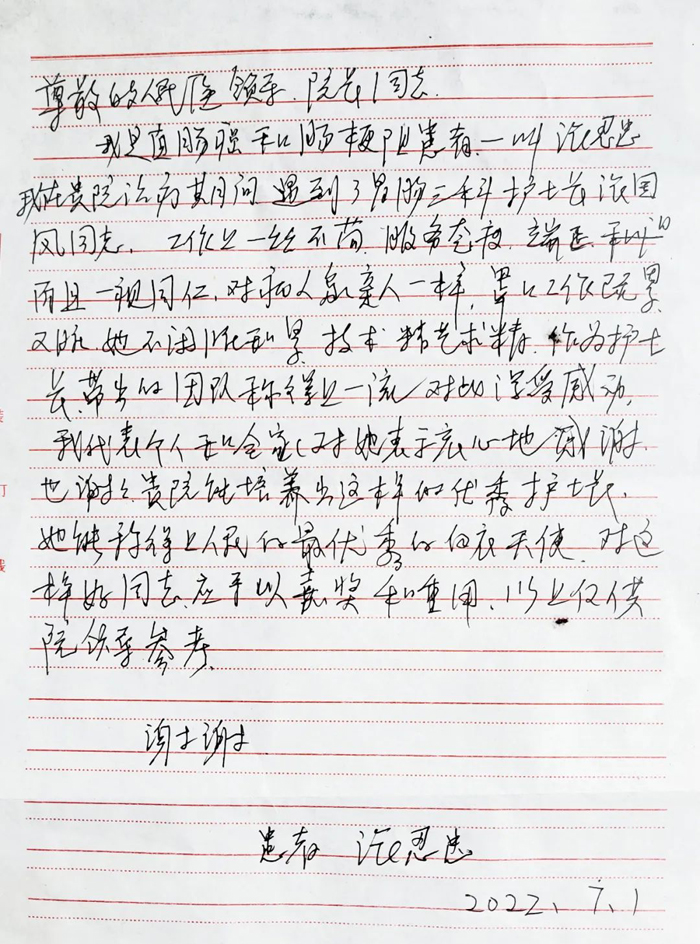 尊敬的人民医领导、院长同志.
我是直肠癌和肠梗阻患者一叫
我在贵院治病其间遇到了胃肠三科护士长 国
风同志. 工作上一丝不苟. 服务态度. 端正.
而且一视同仁. 对病人象亲人一样, 工作既累
又脏 她不 累 技术精艺求精. 作为护士
长. 带出的团队称得上一流 对此深受感动.
我代表个人和全家对她表示衷心地感谢.
也谢谢贵院能培养出这样的优秀护士长.
她能称得上人民的最优秀的白衣天使. 对这
样好同志. 应于以嘉奖和重用. 以上仅供
院领导参考.
谢谢
患者
2022. 7. 1
装
订
线